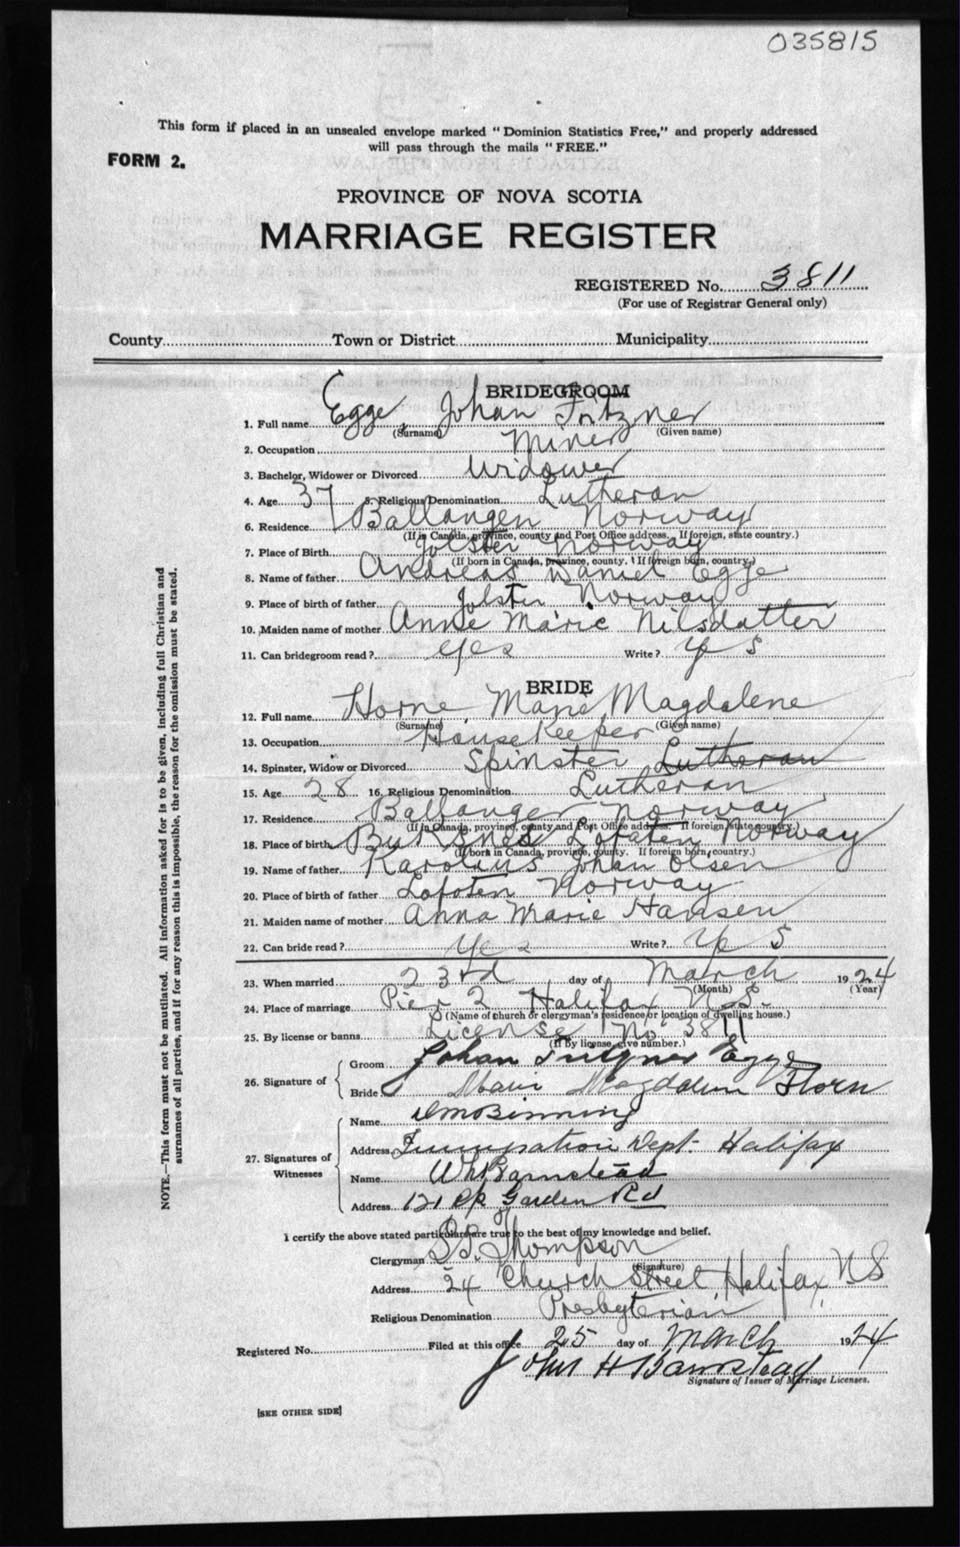 035815
This form if placed in an unsealed envelope marked "Dominion Statistics Free," and properly addressed
will pass through the mails "FREE."
FORM 2.
PROVINCE OF NOVA SCOTIA
MARRIAGE REGISTER
REGISTERED No. 3811
(For use of Registrar General only)
County Town or District Municipality
BRIDEGROOM
1. Full name Egge Johan Fritzner
(Surname) (Given name)
2. Occupation Miner
3. Bachelor, Widower or Divorced Widower
4. Age 37 5. Religious Denomination Lutheran
6. Residence Ballangen Norway
(If in Canada, province, county and Post Office address. If foreign, state country.)
7. Place of Birth Jolster Norway
(If born in Canada, province, county. If foreign born, country.)
8. Name of father Andreas Daniel Egge
9. Place of birth of father Jolster Norway
10. Maiden name of mother Anne Marie Nilsdatter
11. Can bridegroom read? Yes Write? Yes
BRIDE
12. Full name Horne Marie Magdalene
(Surname) (Given name)
13. Occupation Housekeeper
14. Spinster, Widow or Divorced Spinster Lutheran
15. Age 28 16. Religious Denomination Lutheran
17. Residence Ballangen Norway
(If in Canada, province, county and Post Office address. If foreign, state country.)
18. Place of birth Lofoten Norway
(If born in Canada, province, county. If foreign born, country.)
19. Name of father Karolius Johan Olsen
20. Place of birth of father Lofoten Norway
21. Maiden name of mother Anna Marie Hansen
22. Can bride read? Yes Write? Yes
23. When married 23rd day of March 1924
(Month) (Year)
24. Place of marriage Pier 2 Halifax N.S.
(Name of church or clergyman's residence or location of dwelling house.)
25. By license or banns License No 3811
(If by license, give number.)
26. Signature of Groom Johan Fritzner Egge
Bride Marie Magdalene Horn
27. Signatures of Witnesses Name Binning
Address Immigration Dept. Halifax
Name Barnstead
Address 121 Garden Rd
I certify the above stated particulars are true to the best of my knowledge and belief.
Clergyman Thompson
(Signature)
Address 24 Church Street, Halifax, NS
Religious Denomination Presbyterian
Registered No. Filed at this office 25 day of March 1924
John H Barnstead
Signature of Issuer of Marriage Licenses.
[SEE OTHER SIDE]
NOTE.—This form must not be mutilated. All information asked for is to be given, including full Christian and
surnames of all parties, and if for any reason this is impossible, the reason for the omission must be stated.